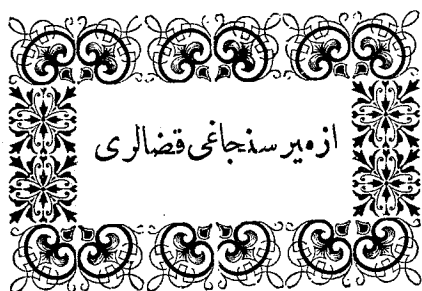 ازمیر سنجاغی قضالری